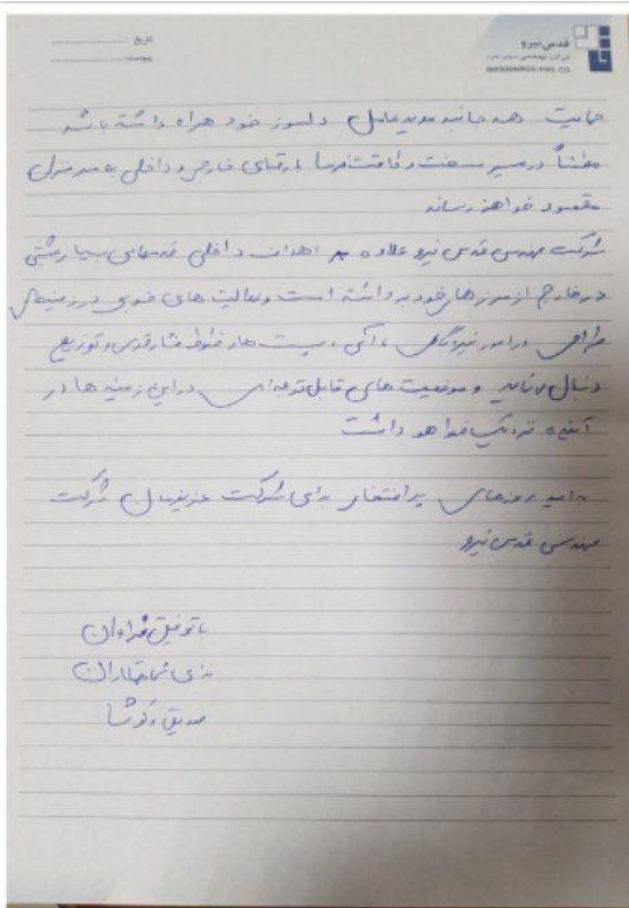 قدس نیرو
GHODSNIROO ENG. CO.
تاریخ:
پیوست:
حمایت همه جانبه مدیرعامل دلسوز خود همراه داشته باشد
مطمئناً در مسیر سخت و طاقت فرسا با رقبای خارجی و داخلی به سر منزل
مقصود خواهند رساند
شرکت مهندسی قدس نیرو علاوه بر اهداف داخلی قدمهای بسیار مثبتی
در خارج از مرزهای خود برداشته است و فعالیت های خوبی در زمینه های
طراحی در امور نیروگاهی، آبی، پست ها و خطوط فشار قوی و توزیع
دنبال می نماید و موفقیت های قابل توجه ای در این زمینه ها در
آینده نزدیک خواهد داشت
به امید روزهای پر افتخار برای شرکت عزیزمان شرکت
مهندسی قدس نیرو
با توفیق فراوان
برای خدمتگزاران
صدیق و کوشا